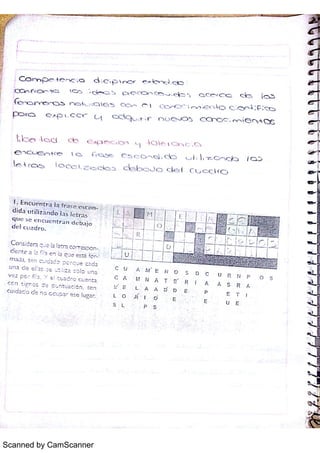 Competencia diciplinar extendida
confronta las ideas preconcebidas acerca de los
fenomenos naturales con el conocimiento cientifico
para explicar y adquirir nuevos conocimientos
Libertad de expresion y tolerancia
encuentre la frase escondida utilizando las
letras localizadas debajo del cuadro
1. Encuentra la frase escon-
dida utilizando las letras
que se encuentran debajo
del cuadro.
Considera que la letra correspon-
diente a la fila en la que está for-
mada, ten cuidado porque cada
una de ellas se utiliza sólo una
vez por fila. Y el cuadro cuenta
con signos de puntuación, ten
cuidado de no ocupar ese lugar.
C U A M E N O S D C U E N P O S
C A M N A T E R I A A S R A
L E L A A D D E P E T I
L O A I O E E U E
S L P S
Scanned by CamScanner